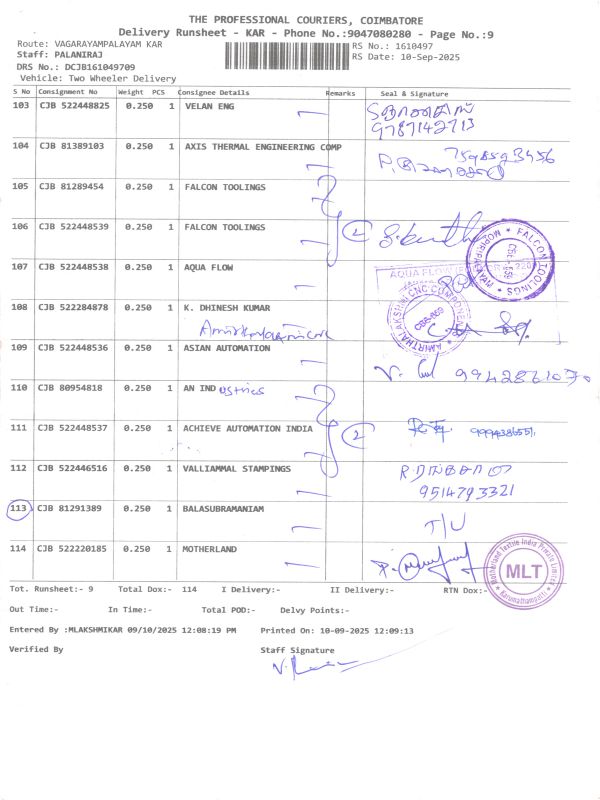 THE PROFESSIONAL COURIERS, COIMBATORE
Delivery Runsheet - KAR - Phone No.:9047080280 - Page No.:9
Route: VAGARAYAMPALAYAM KAR RS No.: 1610497
Staff: PALANIRAJ RS Date: 10-Sep-2025
DRS No.: DCJB161049709
Vehicle: Two Wheeler Delivery
S No Consignment No Weight PCS Consignee Details Remarks Seal & Signature
103 CJB 522448825 0.250 1 VELAN ENG
9787142713
104 CJB 81389103 0.250 1 AXIS THERMAL ENGINEERING COMP
105 CJB 81289454 0.250 1 FALCON TOOLINGS
106 CJB 522448539 0.250 1 FALCON TOOLINGS 2
FALCON TOOLINGS
107 CJB 522448538 0.250 1 AQUA FLOW
AQUA FLOW
108 CJB 522284878 0.250 1 K. DHINESH KUMAR
AMIRTHALAKSHMI CNC COMPONENT
109 CJB 522448536 0.250 1 ASIAN AUTOMATION
110 CJB 80954818 0.250 1 AN IND ustries
111 CJB 522448537 0.250 1 ACHIEVE AUTOMATION INDIA 2
112 CJB 522446516 0.250 1 VALLIAMMAL STAMPINGS
9514793321
113 CJB 81291389 0.250 1 BALASUBRAMANIAM T/U
114 CJB 522220185 0.250 1 MOTHERLAND
Motherland Textile India Private Limited
MLT
Karumathampatti
Tot. Runsheet:- 9 Total Dox:- 114 I Delivery:- II Delivery:- RTN Dox:-
Out Time:- In Time:- Total POD:- Delvy Points:-
Entered By :MLAKSHMIKAR 09/10/2025 12:08:19 PM Printed On: 10-09-2025 12:09:13
Verified By Staff Signature